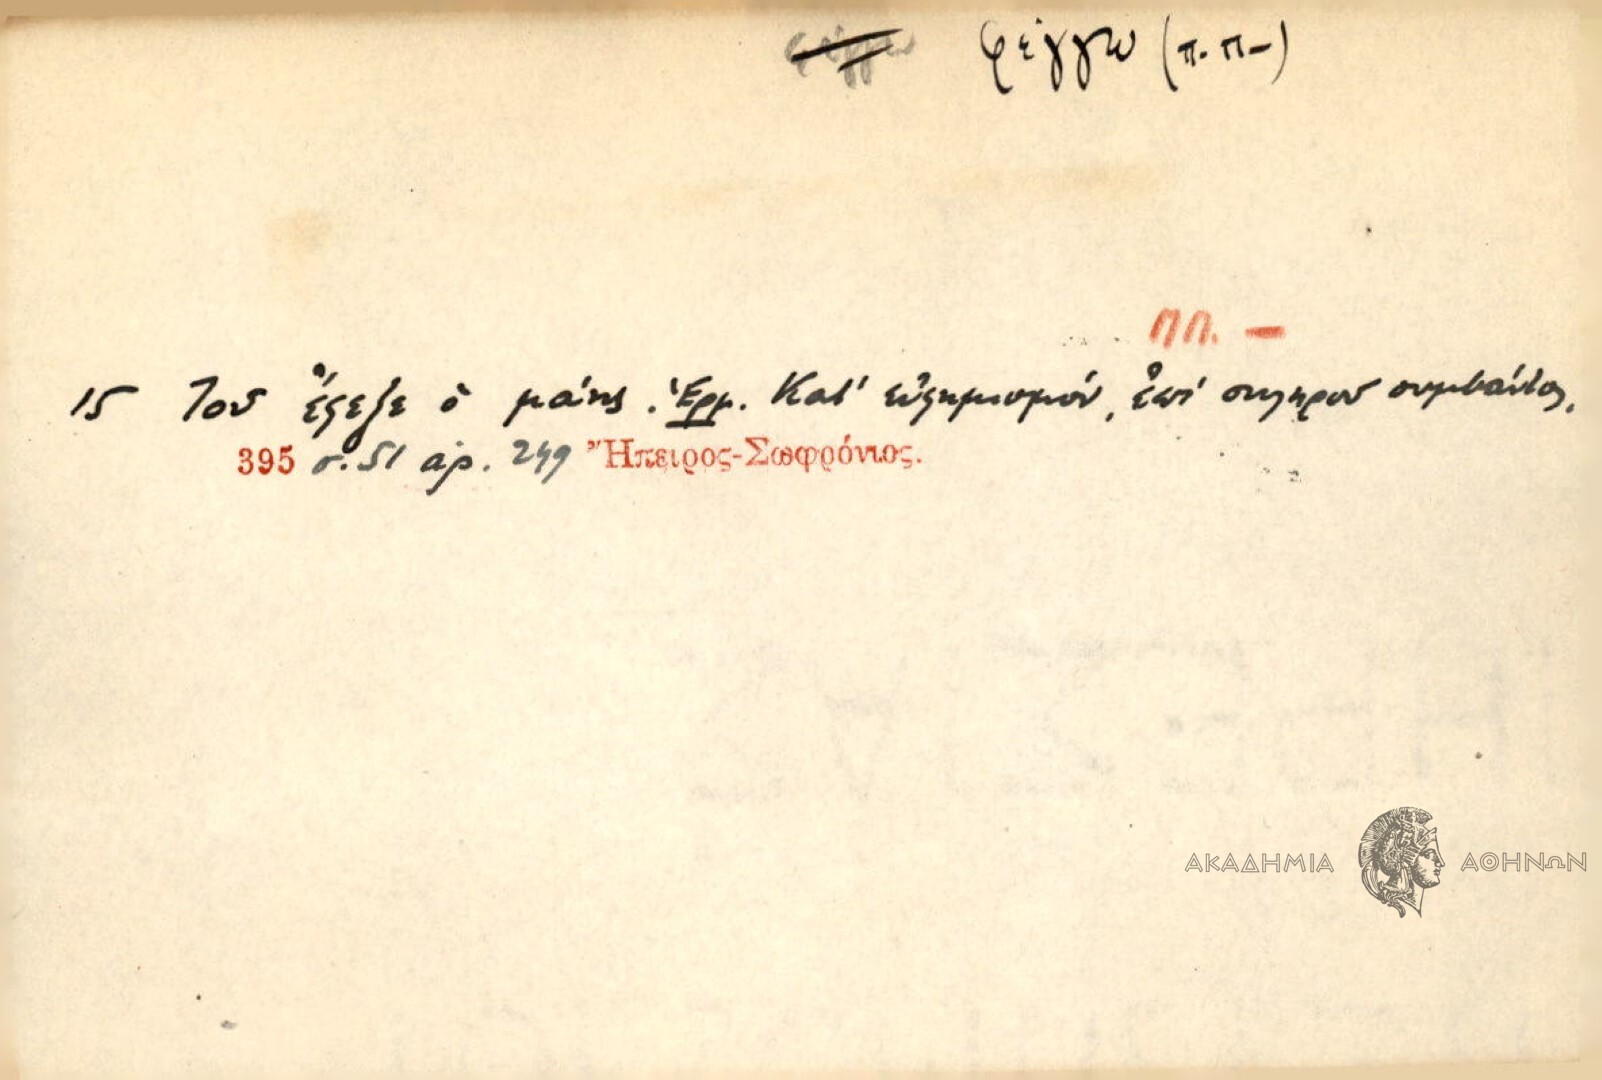 φέγγω (π. π-)
ΠΠ. -
15 Τοὖ ἔφεξε ὁ μάης. Ἑρμ. Κατ' εὐφημισμόν, ἐπί σκληροῦ συμβάντος.
395 σ. 51 ἀρ. 249 Ἤπειρος-Σωφρόνιος.
ΑΚΑΔΗΜΙΑ ΑΘΗΝΩΝ